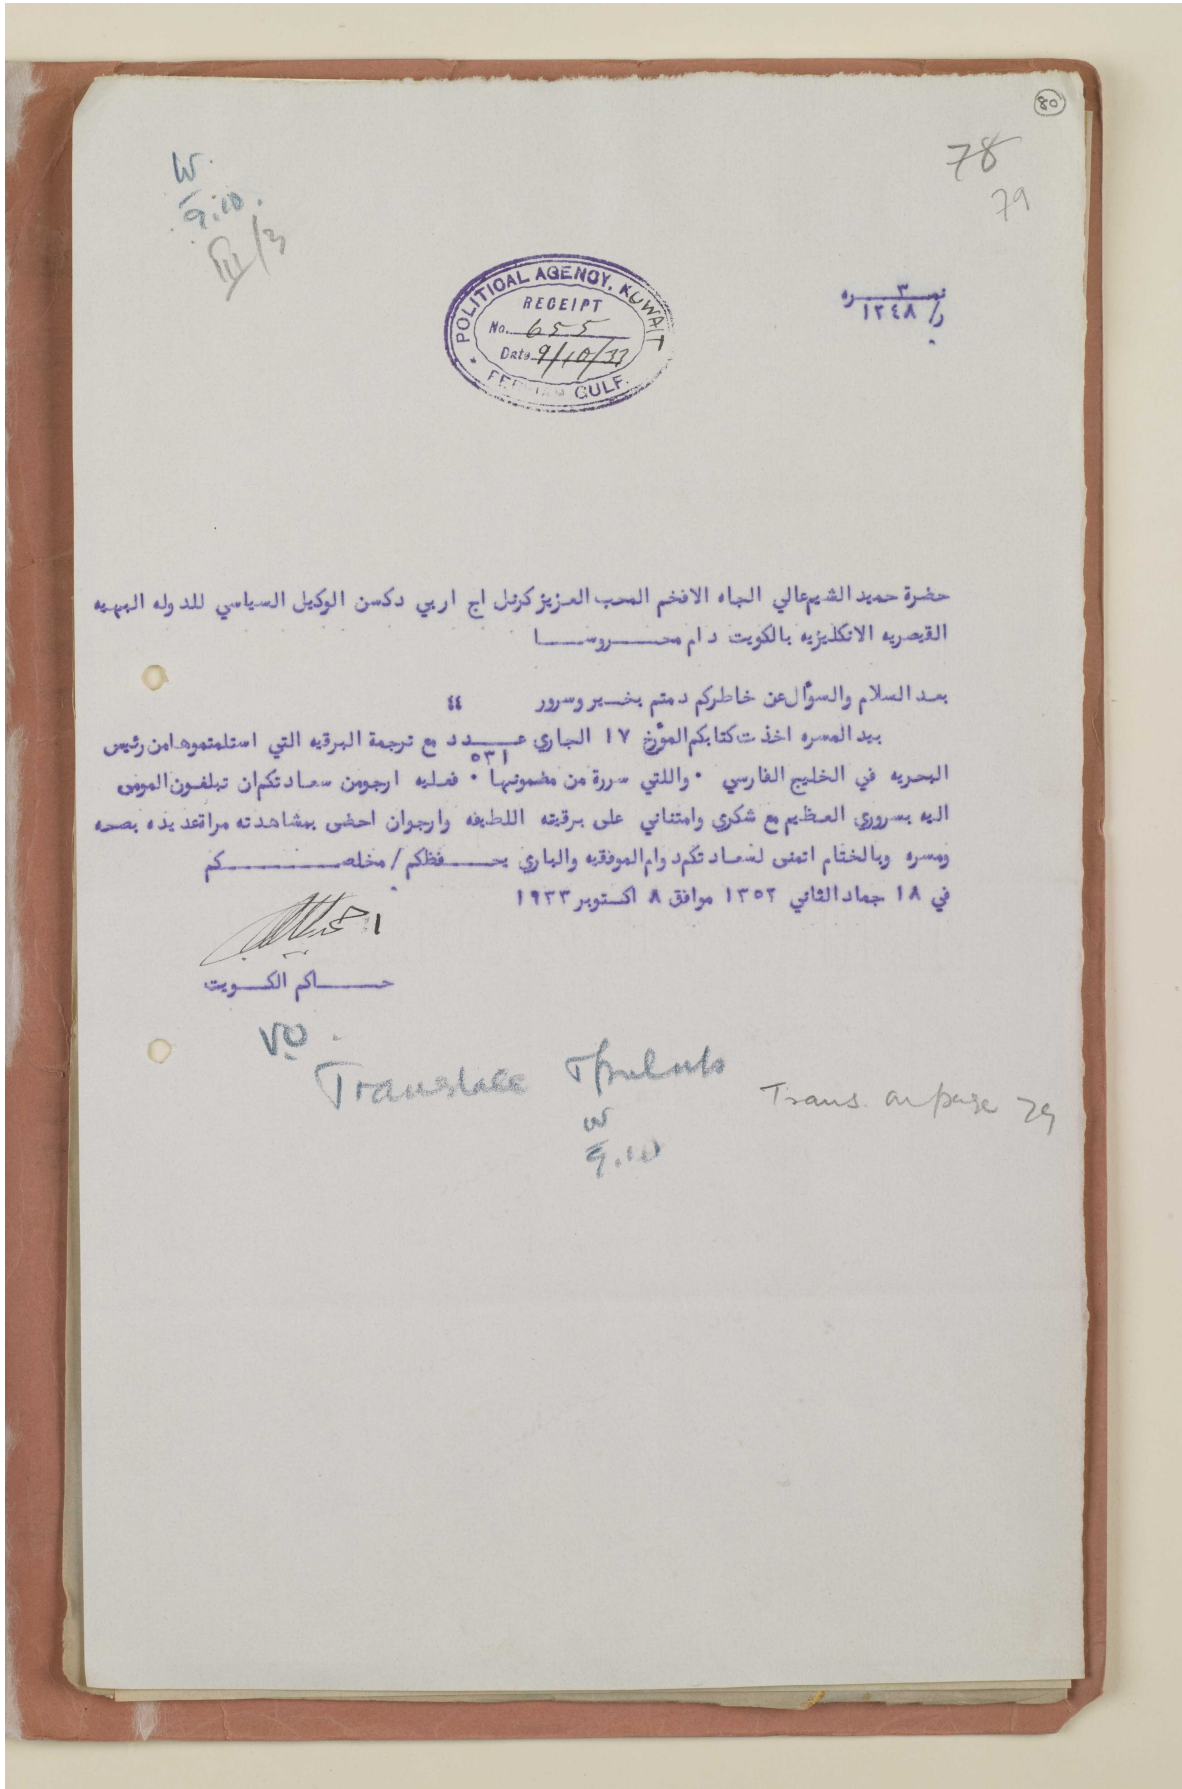 80
78
79
W.
9.10.
III/3
POLITICAL AGENCY, KUWAIT
RECEIPT
No. 655
Date 9/10/33
PERSIAN GULF.
نمــ٣ــره
ر/ ١٢٤٨
حضرة حميد الشيم عالي الجاه الافخم المحب العزيز كرنل اج اربي دكسن الوكيل السياسي للدوله البهيه
القيصريه الانكليزيه بالكويت دام محـــروســـا
بعد السلام والسؤال عن خاطركم دمتم بخــير وسرور
٤٤
بيد المسره اخذت كتابكم المؤرخ ١٧ الجاري عـــدد مع ترجمة البرقيه التي استلمتموها من رئيس
٥٣١
البحريه في الخليج الفارسي ٠ واللتي سررة من مضمونها ٠ فعليه ارجو من سعادتكم ان تبلغون المومى
اليه بسروري العظيم مع شكري وامتناني على برقيته اللطيفه وارجوان احضى بمشاهدته مراة عديده بصحه
ومسره وبالختام اتمنى لسعادتكم دوام الموفقيه والباري يحـــفظكم / مخلصـــــكم
في ١٨ جماد الثاني ١٣٥٢ موافق ٨ اكتوبر ١٩٣٣
حـــاكم الكـــويت
Translate
W
9.10
Trans. on page 79